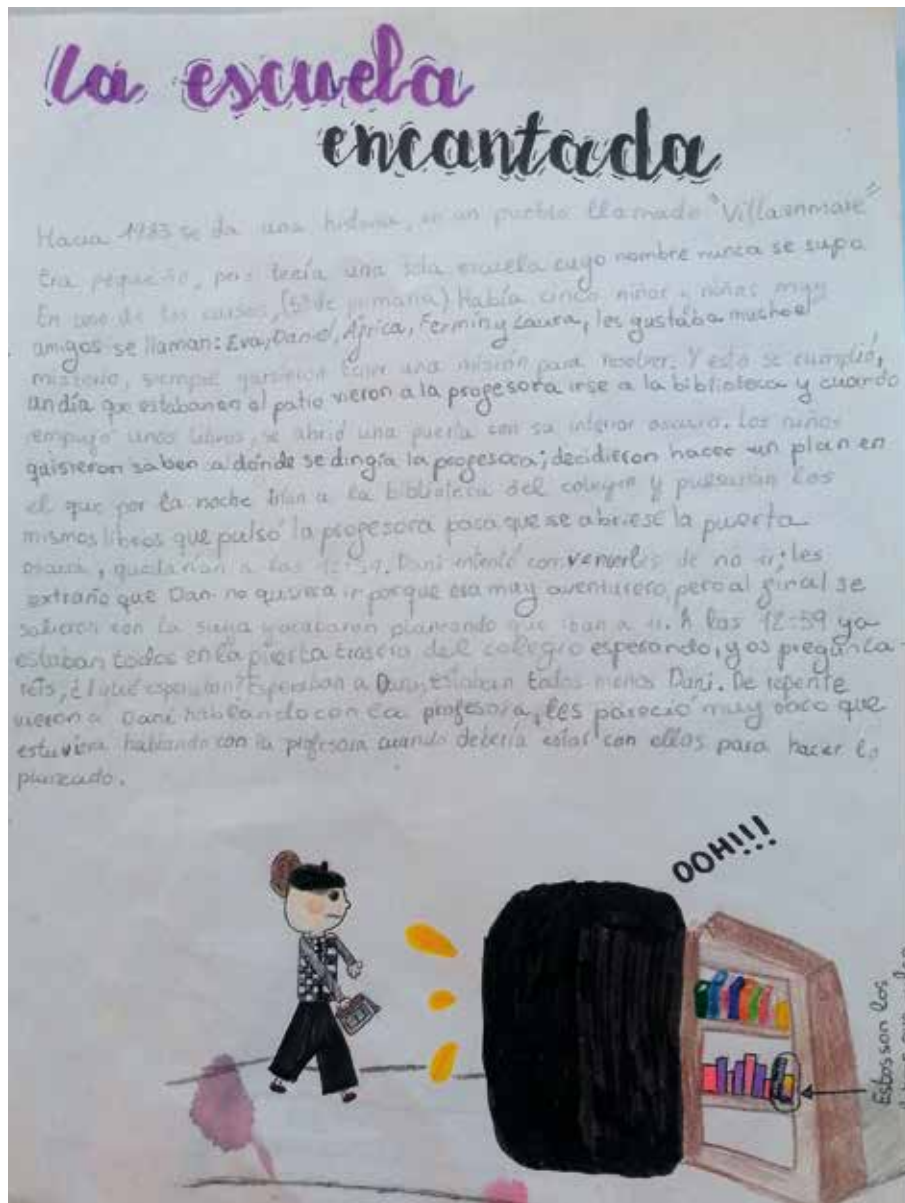 La escuela
encantada
Hacia 1983 se da una historia, en un pueblo llamado "Villaenmare"
Era pequeño, pero tenía una sola escuela cuyo nombre nunca se supo.
En uno de los cursos, (5º de primaria) Había cinco niños y niñas muy
amigos se llaman: Eva, Daniel, África, Fermín y Laura, les gustaba mucho el
misterio, siempre quisieron tener una misión para resolver. Y esto se cumplió,
un día que estaban en el patio vieron a la profesora irse a la biblioteca y cuando
empujó unos libros, se abrió una puerta con su interior oscuro. Los niños
quisieron saben a dónde se dirigía la profesora; decidieron hacer un plan en
el que por la noche irían a la biblioteca del colegio y pulsarían los
mismos libros que pulsó la profesora para que se abriese la puerta
oscura, quedarían a las 12:59. Dani intentó convencerles de no ir; les
extraño que Dani no quisiera ir porque era muy aventurero, pero al final se
salieron con la suya y acabaron planeando que iban a ir. A las 12:59 ya
estaban todos en la puerta trasera del colegio esperando, y os pregunta-
réis, ¿A qué esperaban? Esperaban a Dani, estaban todos menos Dani. De repente
vieron a Dani hablando con la profesora, les pareció muy raro que
estuviera hablando con la profesora cuando debería estar con ellos para hacer lo
planeado.
OOH!!!
Estos son los